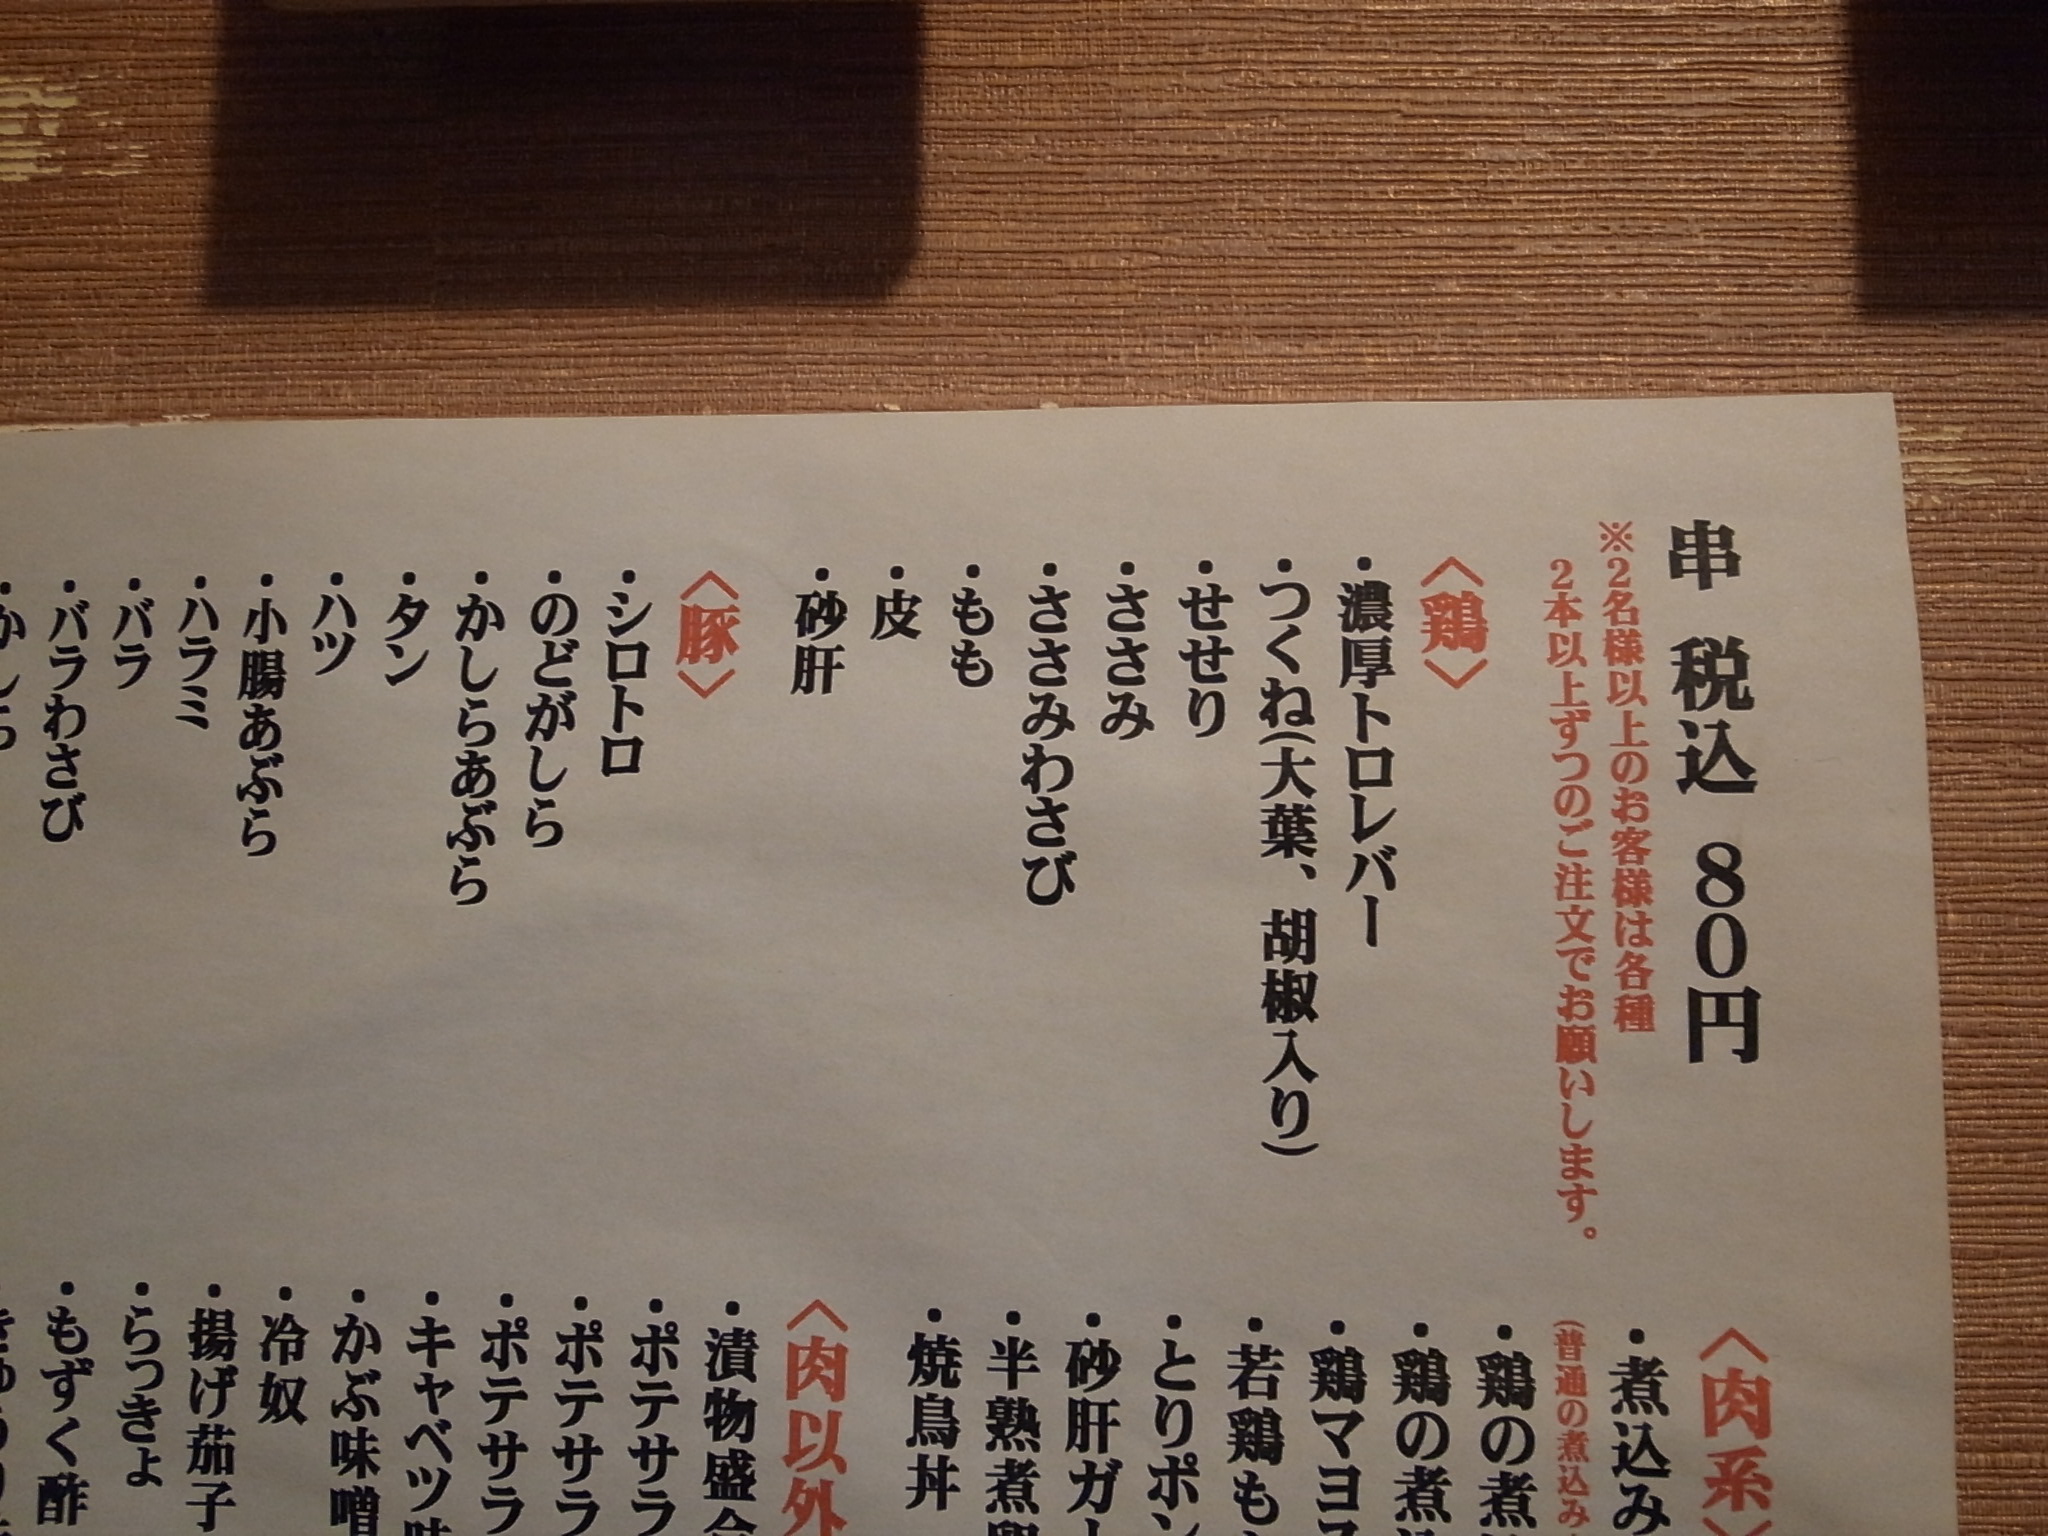 串 税込 80円
※2名様以上のお客様は各種
2本以上ずつのご注文でお願いします。
〈鶏〉
・濃厚トロレバー
・つくね(大葉、胡椒入り)
・せせり
・ささみ
・ささみわさび
・もも
・皮
・砂肝
〈豚〉
・シロトロ
・のどがしら
・かしらあぶら
・タン
・ハツ
・小腸あぶら
・ハラミ
・バラ
・バラわさび
〈肉系〉
・煮込み
(普通の煮込み
・鶏の煮
・鶏の煮
・鶏マヨ
・若鶏も
・とりポン
・砂肝ガ
・半熟煮
・焼鳥丼
〈肉以外
・漬物盛
・ポテサラ
・ポテサラ
・ポテサラ
・キャベツ味
・かぶ味噌
・冷奴
・揚げ茄子
・らっきょ
・もずく酢